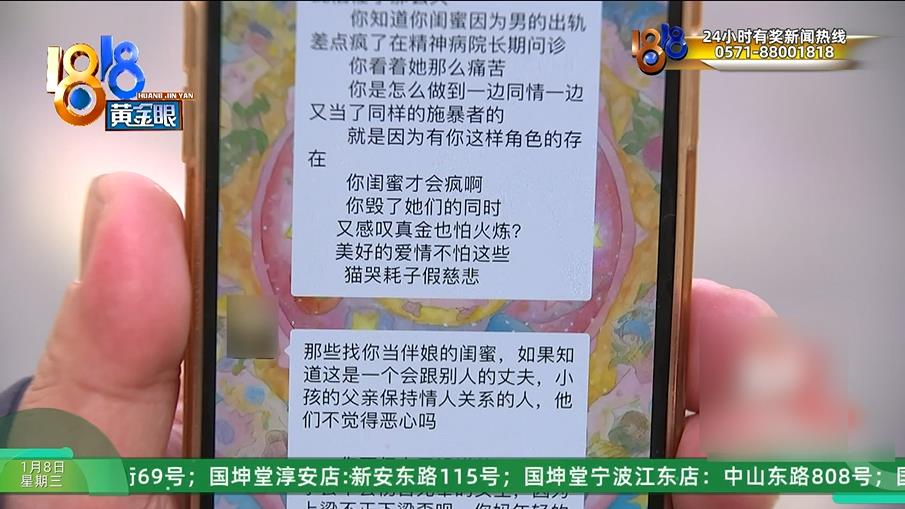 你知道你闺蜜因为男的出轨
差点疯了在精神病院长期问诊
你看着她那么痛苦
你是怎么做到一边同情一边
又当了同样的施暴者的
就是因为有你这样角色的存
在
你闺蜜才会疯啊
你毁了她们的同时
又感叹真金也怕火炼?
美好的爱情不怕这些
猫哭耗子假慈悲
那些找你当伴娘的闺蜜，如果知
道这是一个会跟别人的丈夫，小
孩的父亲保持情人关系的人，他
们不觉得恶心吗
1818
HUANG JIN YAN
黄金眼
1818
24小时有奖新闻热线
0571-88001818
1月8日
星期三
街69号；国坤堂淳安店:新安东路115号；国坤堂宁波江东店：中山东路808号；国